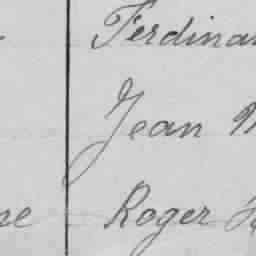 Ferdinan
Jean M
ne Roger